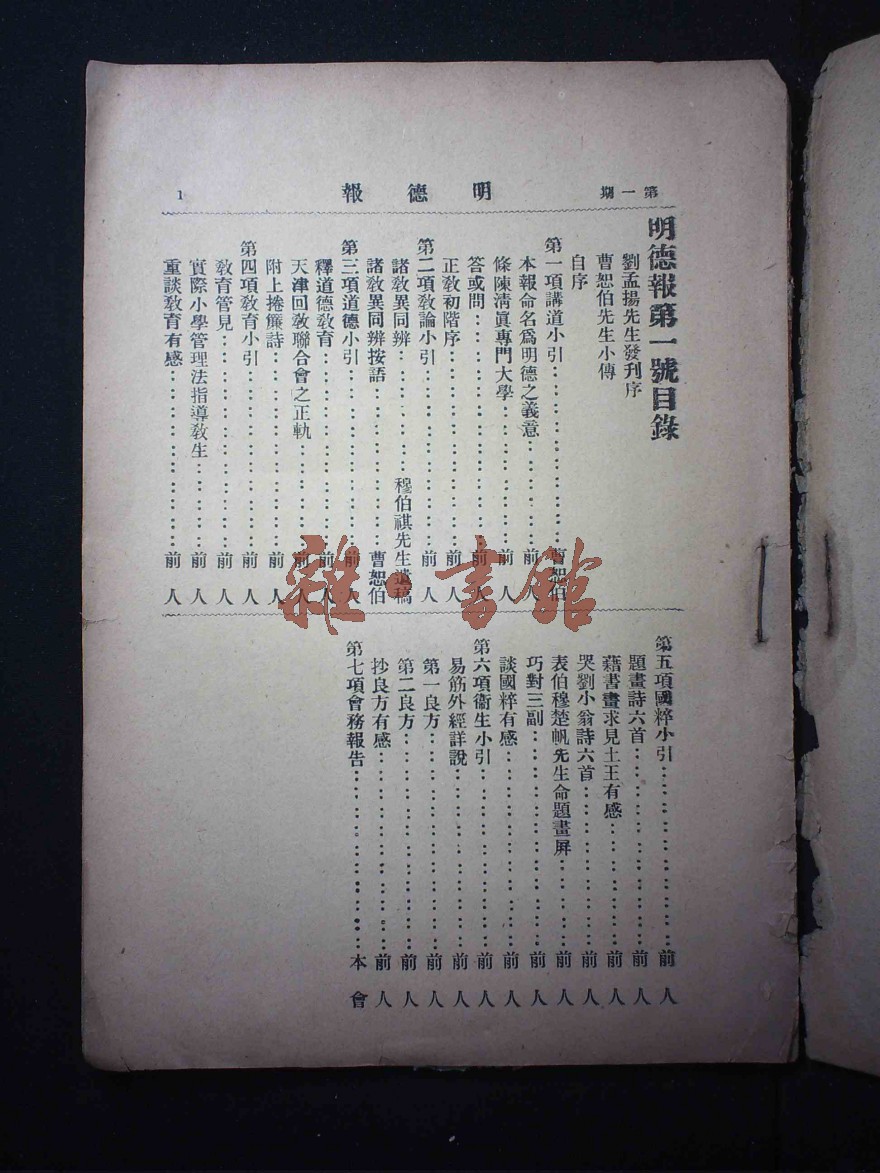 第一期
明德報
1
明德報第一號目錄
劉孟揚先生發刋序
曹恕伯先生小傳
自序
第一項講道小引……………………曹恕伯
本報命名爲明德之義意……………前人
條陳淸眞專門大學…………………前人
答或問………………………………前人
正敎初階序…………………………前人
第二項敎論小引……………………前人
諸敎異同辨…………………穆伯祺先生遺稿
諸敎異同辨按語……………………曹恕伯
第三項道德小引……………………前人
釋道德敎育…………………………前人
天津回敎聯合會之正軌……………前人
附上捲簾詩…………………………前人
第四項敎育小引……………………前人
敎育管見……………………………前人
實際小學管理法指導敎生…………前人
重談敎育有感………………………前人
第五項國粹小引……………………前人
題畫詩六首…………………………前人
藉書畫求見土王有感………………前人
哭劉小翁詩六首……………………前人
表伯穆楚帆先生命題畫屏…………前人
巧對三副……………………………前人
談國粹有感…………………………前人
第六項衞生小引……………………前人
易筋外經詳說………………………前人
第一良方……………………………前人
第二良方……………………………前人
抄良方有感…………………………前人
第七項會務報告……………………本會
雜·書館